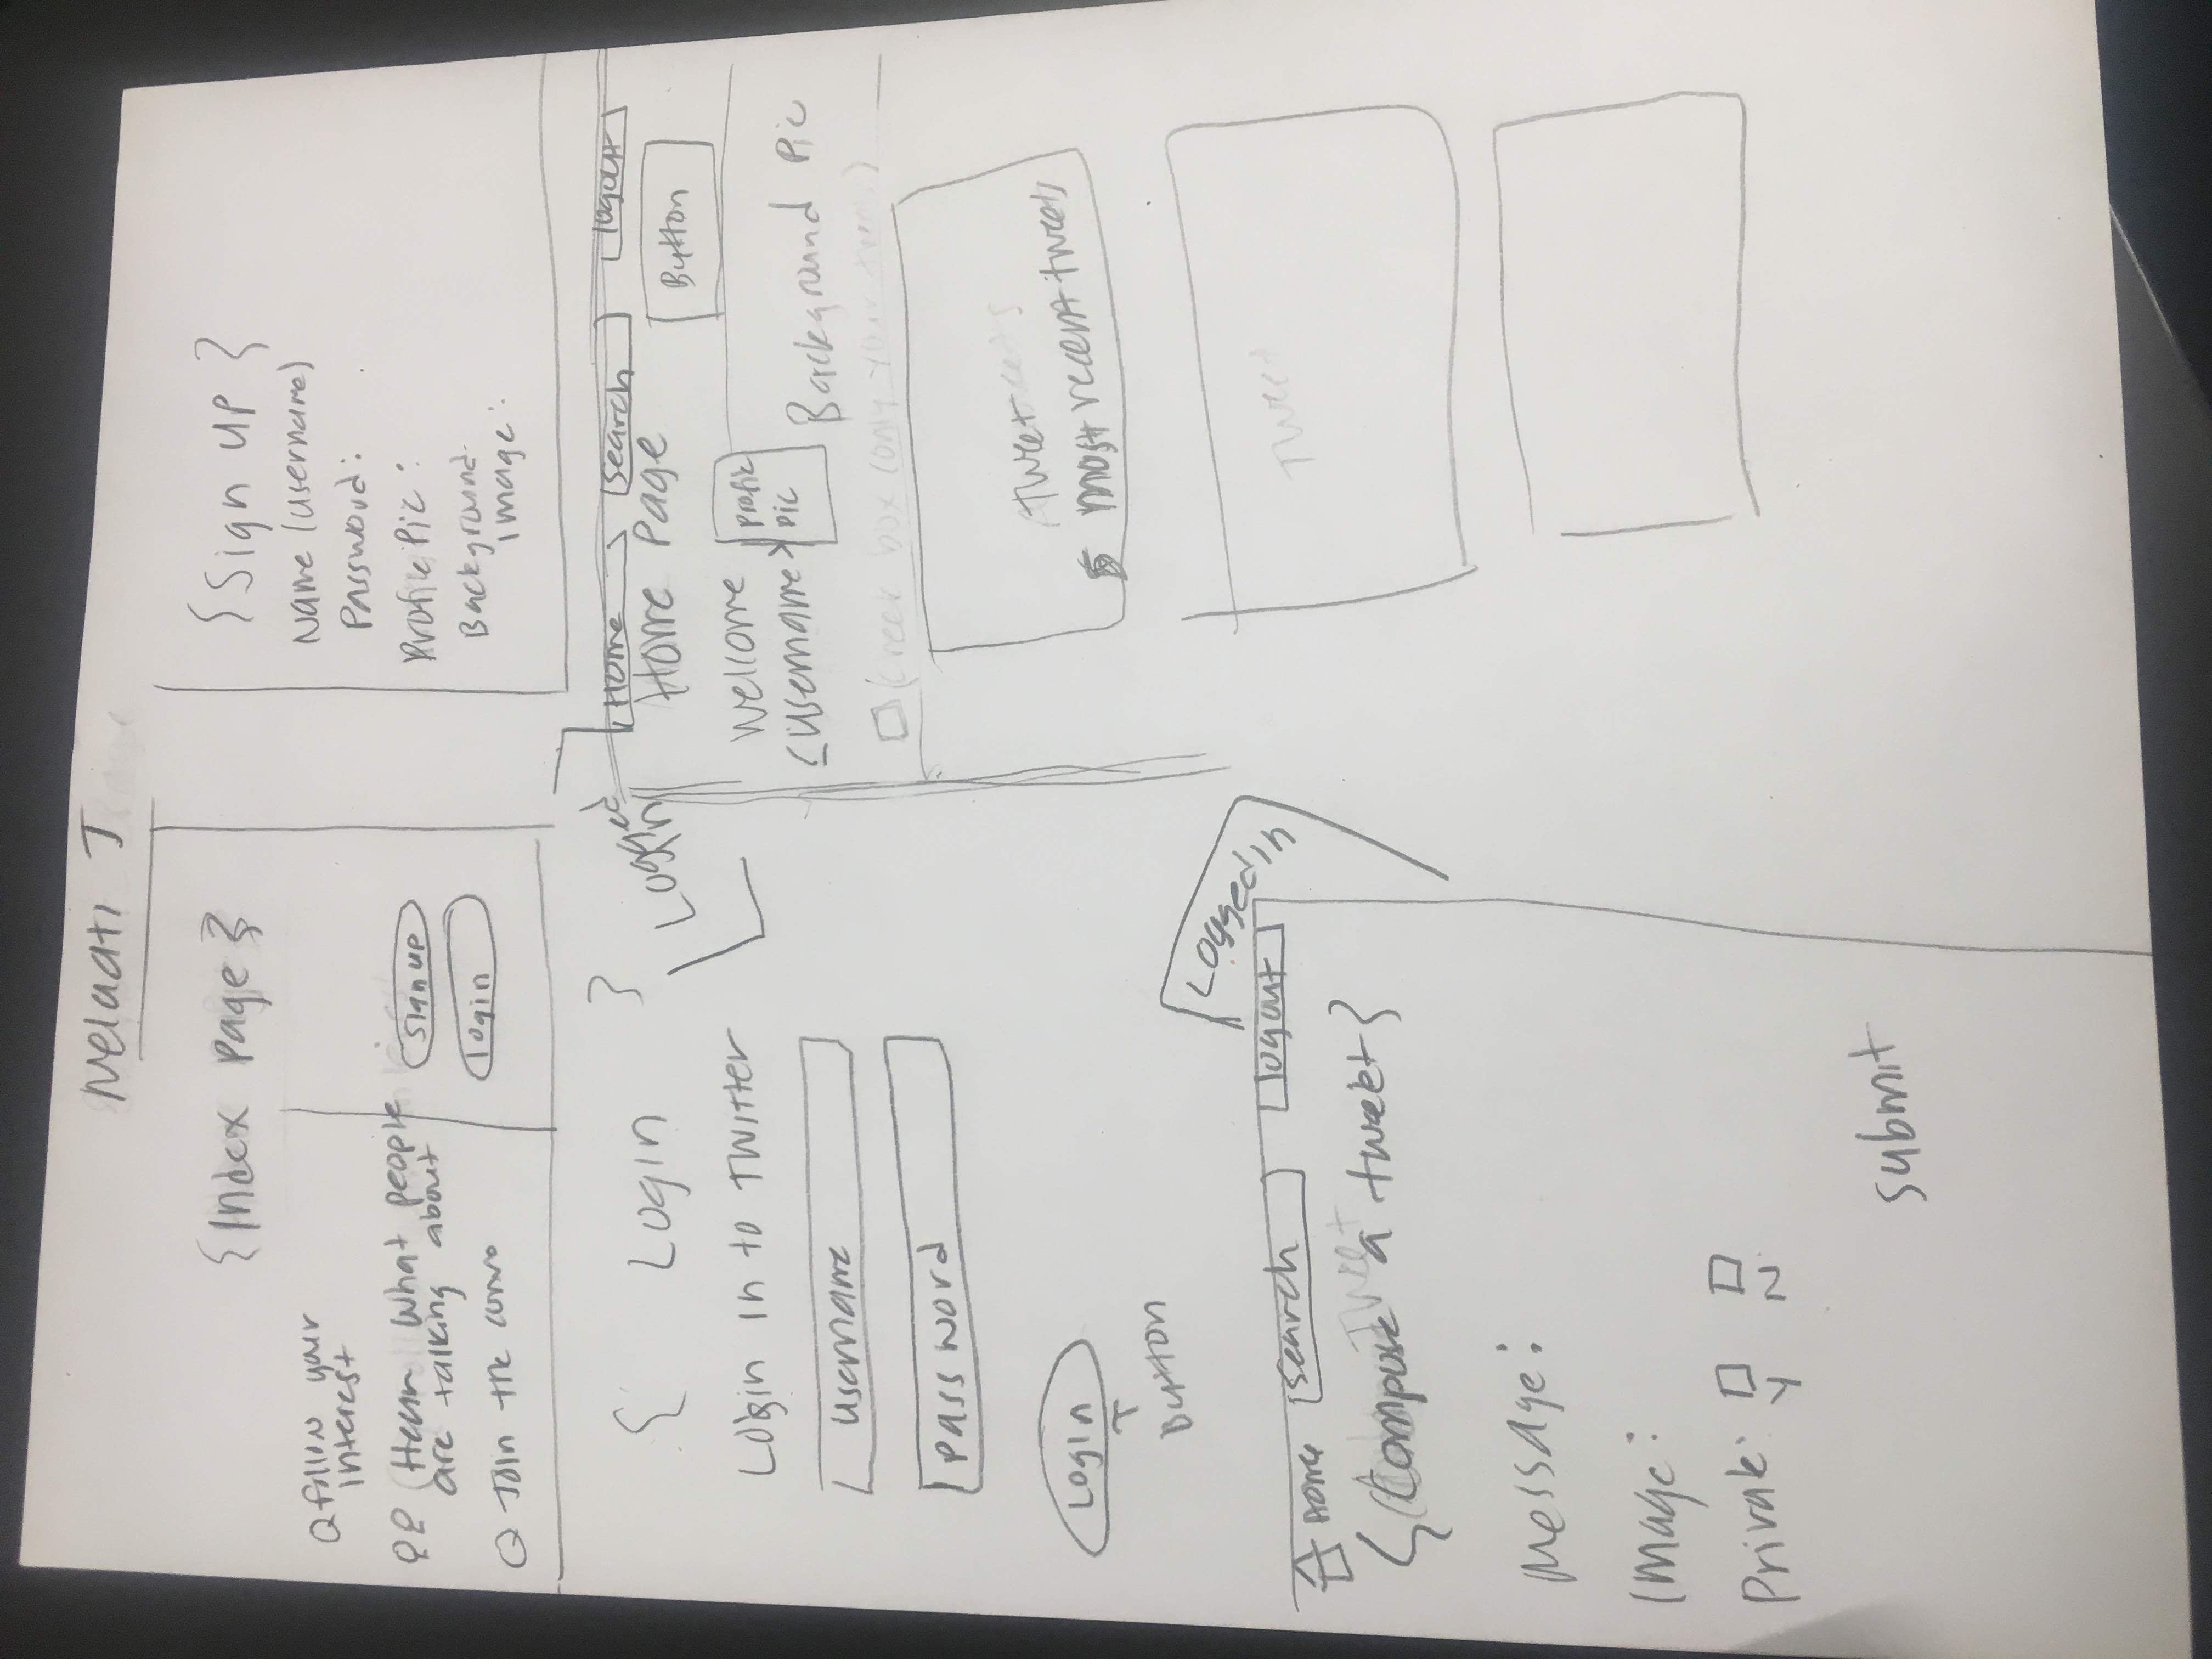 Nelaati J
{Index page}
follow your
interest
(Hear what people
are talking about
Join the convo
sign up
login
{Sign up}
Name (username)
Password:
Profile Pic:
Background
Image:
{ Login }
Login in to Twitter
username
password
Login
Button
Logged
in
Home
search
logout
Home Page
Button
Welcome
<username>
profile
pic
Background Pic
(check box (only your
tweet
5 most recent tweets
Tweet
Logged in
Home
search
logout
{Compose a tweet}
Message:
Image:
Private:
Y N
submit